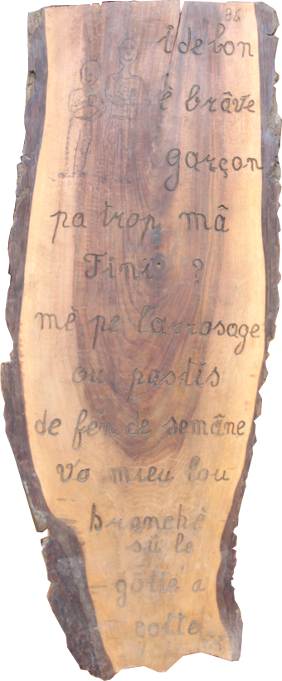 36
i de bon
è brâve
garçon
pa trop mâ
Fini ?
mè pe l'arrosage
ou pastis
de fén de semâne
vo mieu lou
branchè
sù le
gôtte a
gotte